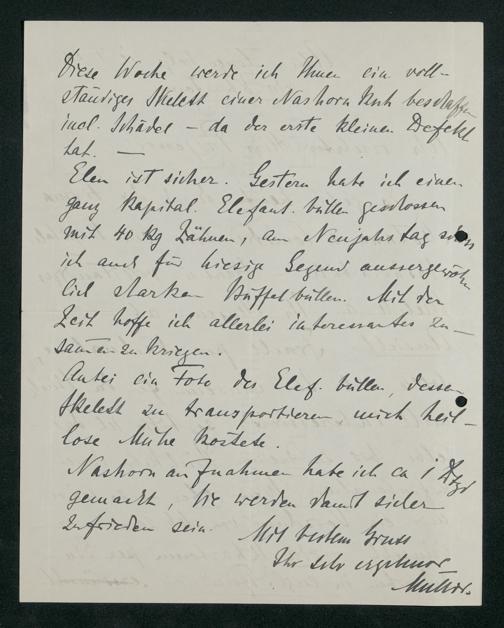 Diese Woche werde ich Ihnen ein voll-
ständiges Skelett einer Nashorn Kuh beschaffen
incl. Schädel – da der erste kleinen Defekt
hat. —
Elen ist sicher. Gestern habe ich einen
ganz kapital. Elefant. bullen geschossen
mit 40 kg Zähnen, am Neujahrstag schoss
ich auch für hiesige Gegend aussergewöhn
lich starken Büffelbullen. Mit der
Zeit hoffe ich allerlei interessantes zu-
sammenzukriegen.
Anbei ein Foto des Elef. bullen, dessen
Skelett zu transportieren mich heil-
lose Mühe kostete.
Nashornaufnahmen habe ich ca 1 Dtzd
gemacht, Sie werden damit sicher
zufrieden sein.
Mit bestem Gruss
Ihr sehr ergebener